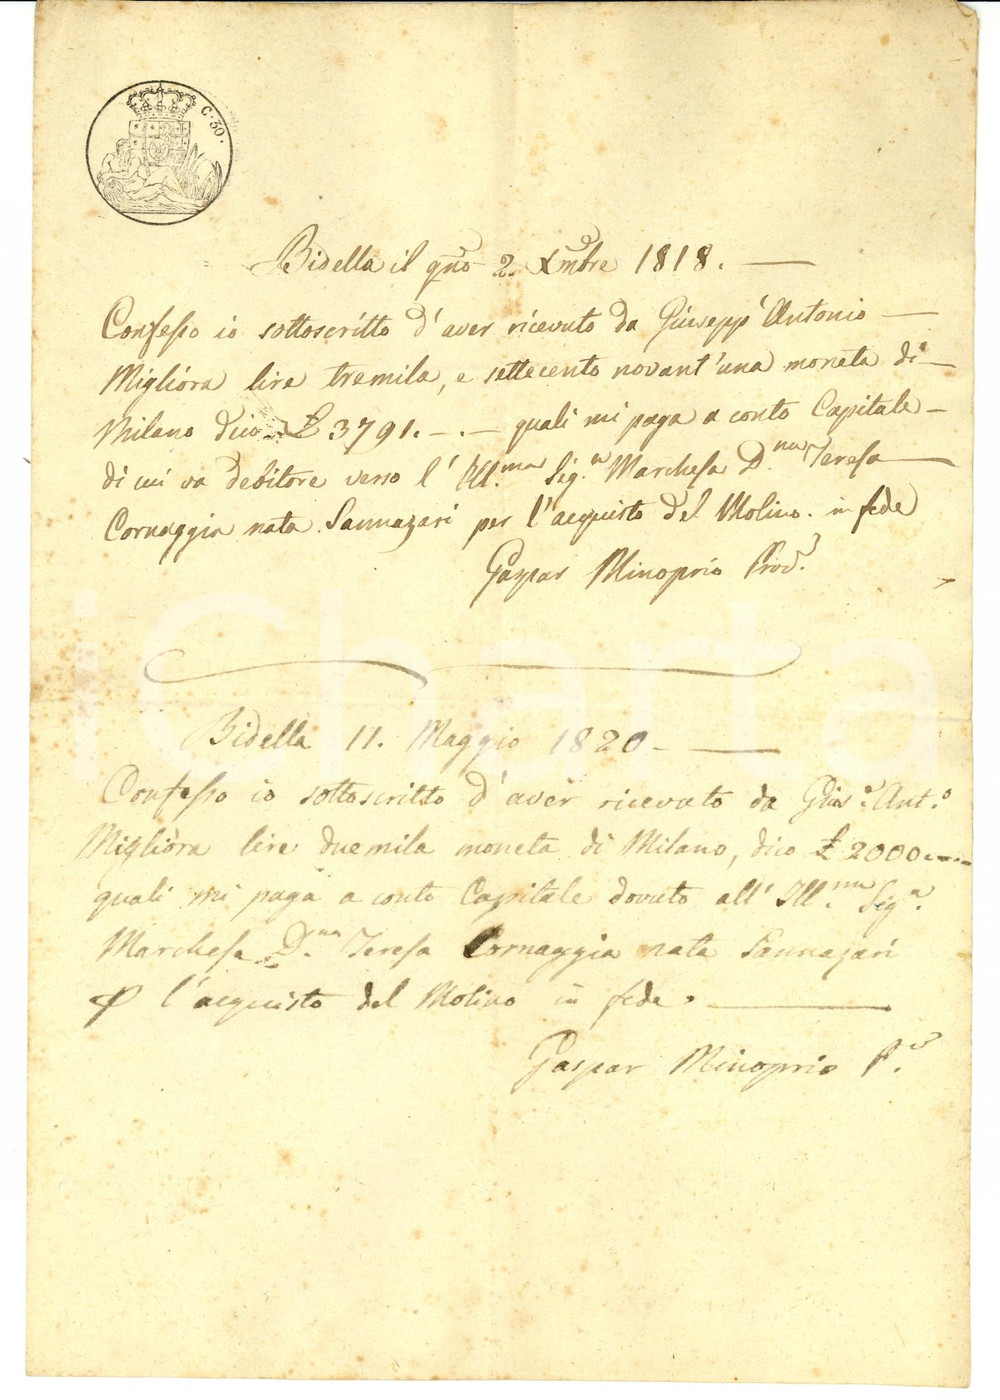 C. 30.
Bidella il qno 2. Xmbre 1818.
Confesso io sottoscritto d'aver ricevuto da Giusepp'Antonio
Migliora lire tremila, e settecento novant'una moneta di
Milano dico £ 3791.-.- quali mi paga a conto Capitale
di cui va debitore verso l'Ill.ma Sig.a Marchesa D.na Teresa
Cornaggia nata Sannazari per l'acquisto del Molino. in fede
Gaspar Minoprio Prod.e
Bidella 11. Maggio 1820.
Confesso io sottoscritto d'aver ricevuto da Gius.e Ant.o
Migliora lire duemila moneta di Milano, dico £ 2000.
quali mi paga a conto Capitale dovuto all'Ill.ma Sig.a
Marchesa D.na Teresa Cornaggia nata Sannazari
P l'acquisto del Molino in fede.
Gaspar Minoprio P.e
Charta